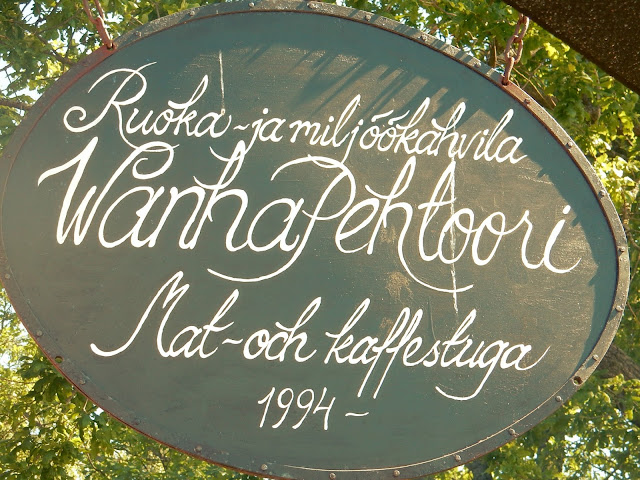 Ruoka-ja miljöökahvila
Wanha Pehtoori
Mat-och kaffestuga
1994-